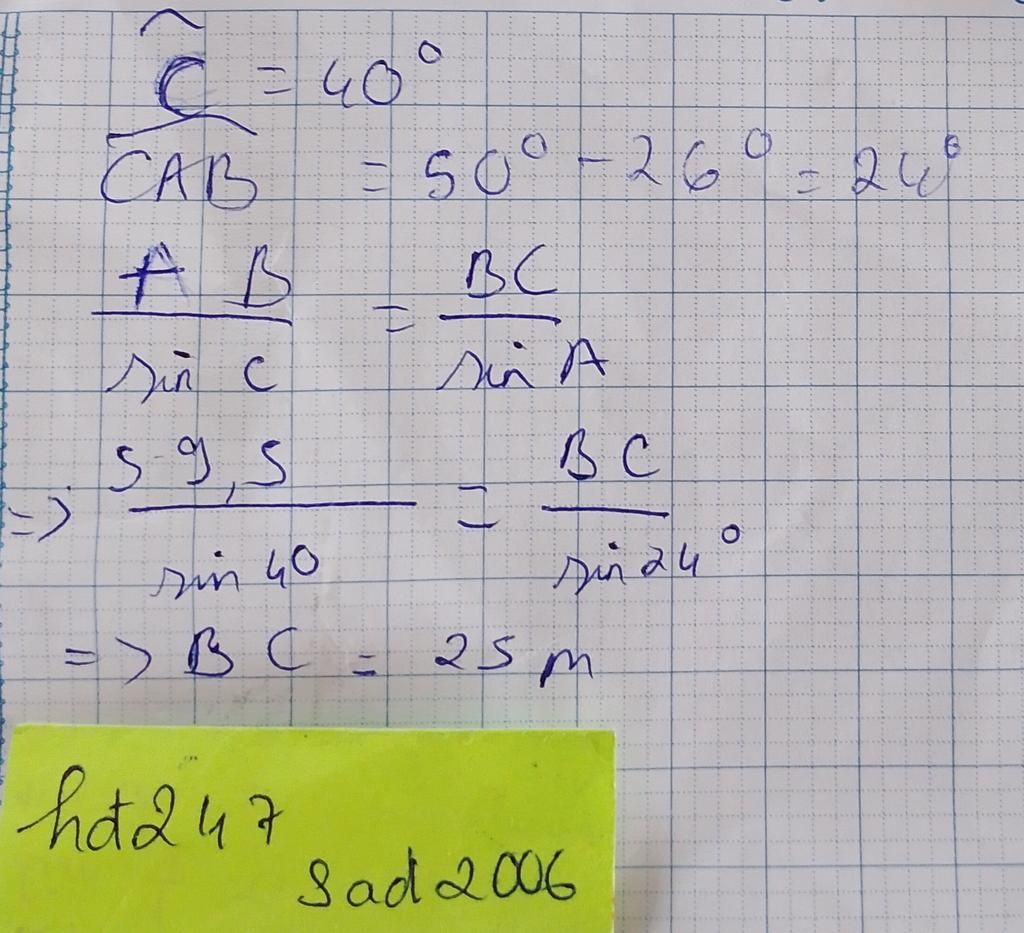 Ĉ = 40°
CAB = 50° - 26° = 24°
AB / sin C = BC / sin A
=> 59,5 / sin 40 = BC / sin 24°
=> BC = 25 m
hdt247
sad2006